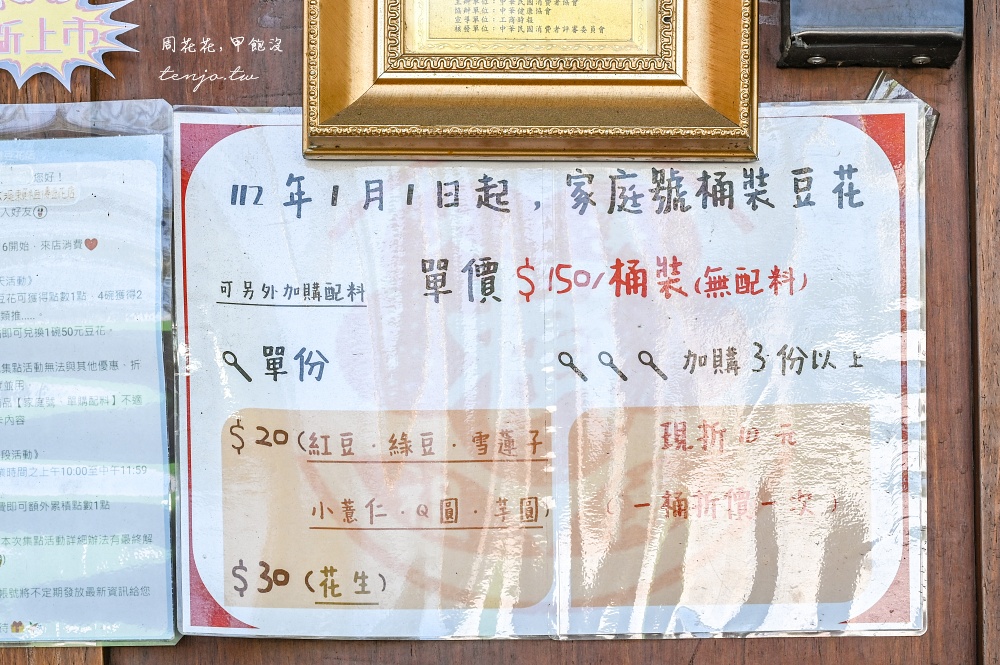 新上市
周花花,甲飽沒
tenjo.tw
協辦單位:中華健康協會
宣導單位:工商時報
核發單位:中華民國消費者評審委員會
112年1月1日起,家庭號桶裝豆花
單價$150/桶裝(無配料)
可另外加購配料
單份
加購3份以上
$20(紅豆.綠豆.雪蓮子
小薏仁.Q圓.芋圓)
$30(花生)
現折10元
(一桶折價一次)
您好!
人好友
6開始,來店消費
活動》
豆花可獲得點數1點,4碗獲得2
類推.....。
即可兌換1碗50元豆花。
集點活動無法與其他優惠、折
並用。
【家庭號、單購配料】不適
內容
段活動》
時間之上午10:00至中午11:59
即可額外累積點數1點
本次集點活動詳細辦法有最終解
將不定期發放最新資訊給您
待